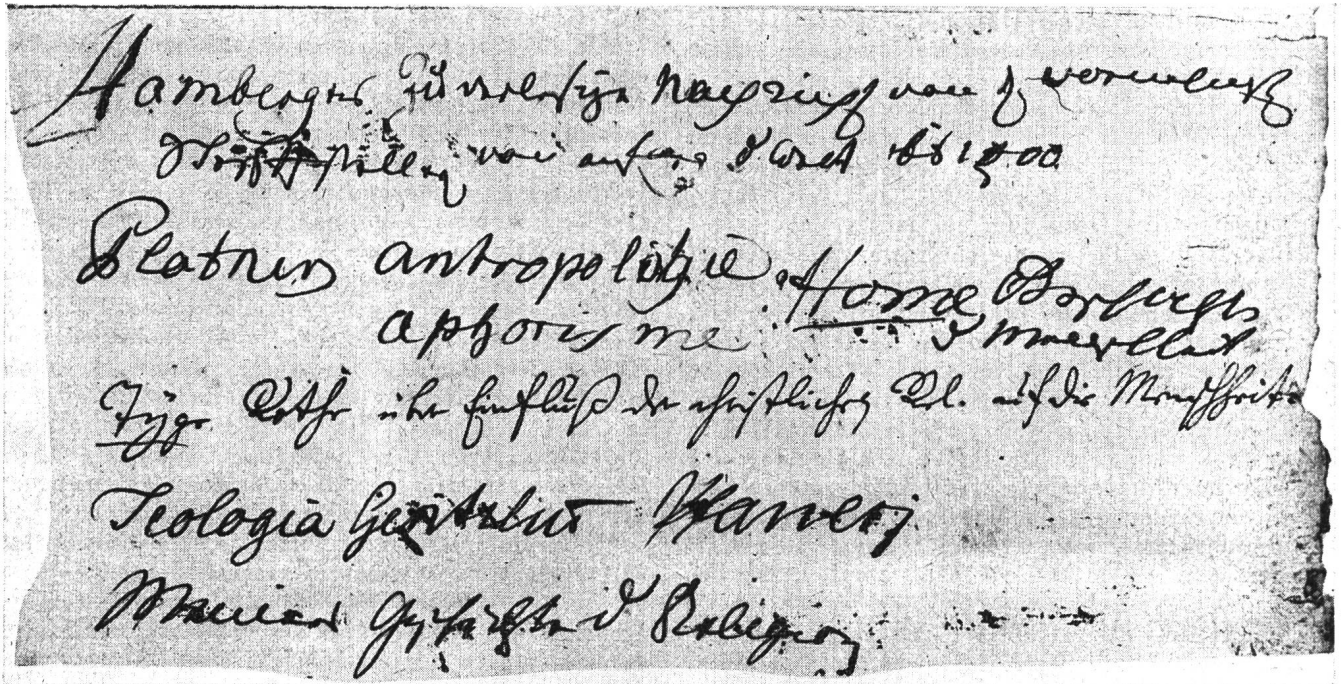 Hambergers zuverlesige Nachricht von d vornehmst
Schriftstellern von anfang d Welt bis 1500
Platners antropologie
aphorisme Home Versuch
d Menschheit
Tyge Rothe über Einfluß der christlichen Rel. auf die Menschheit
Teologia Gentilium
Meiners Geschichte d Religion